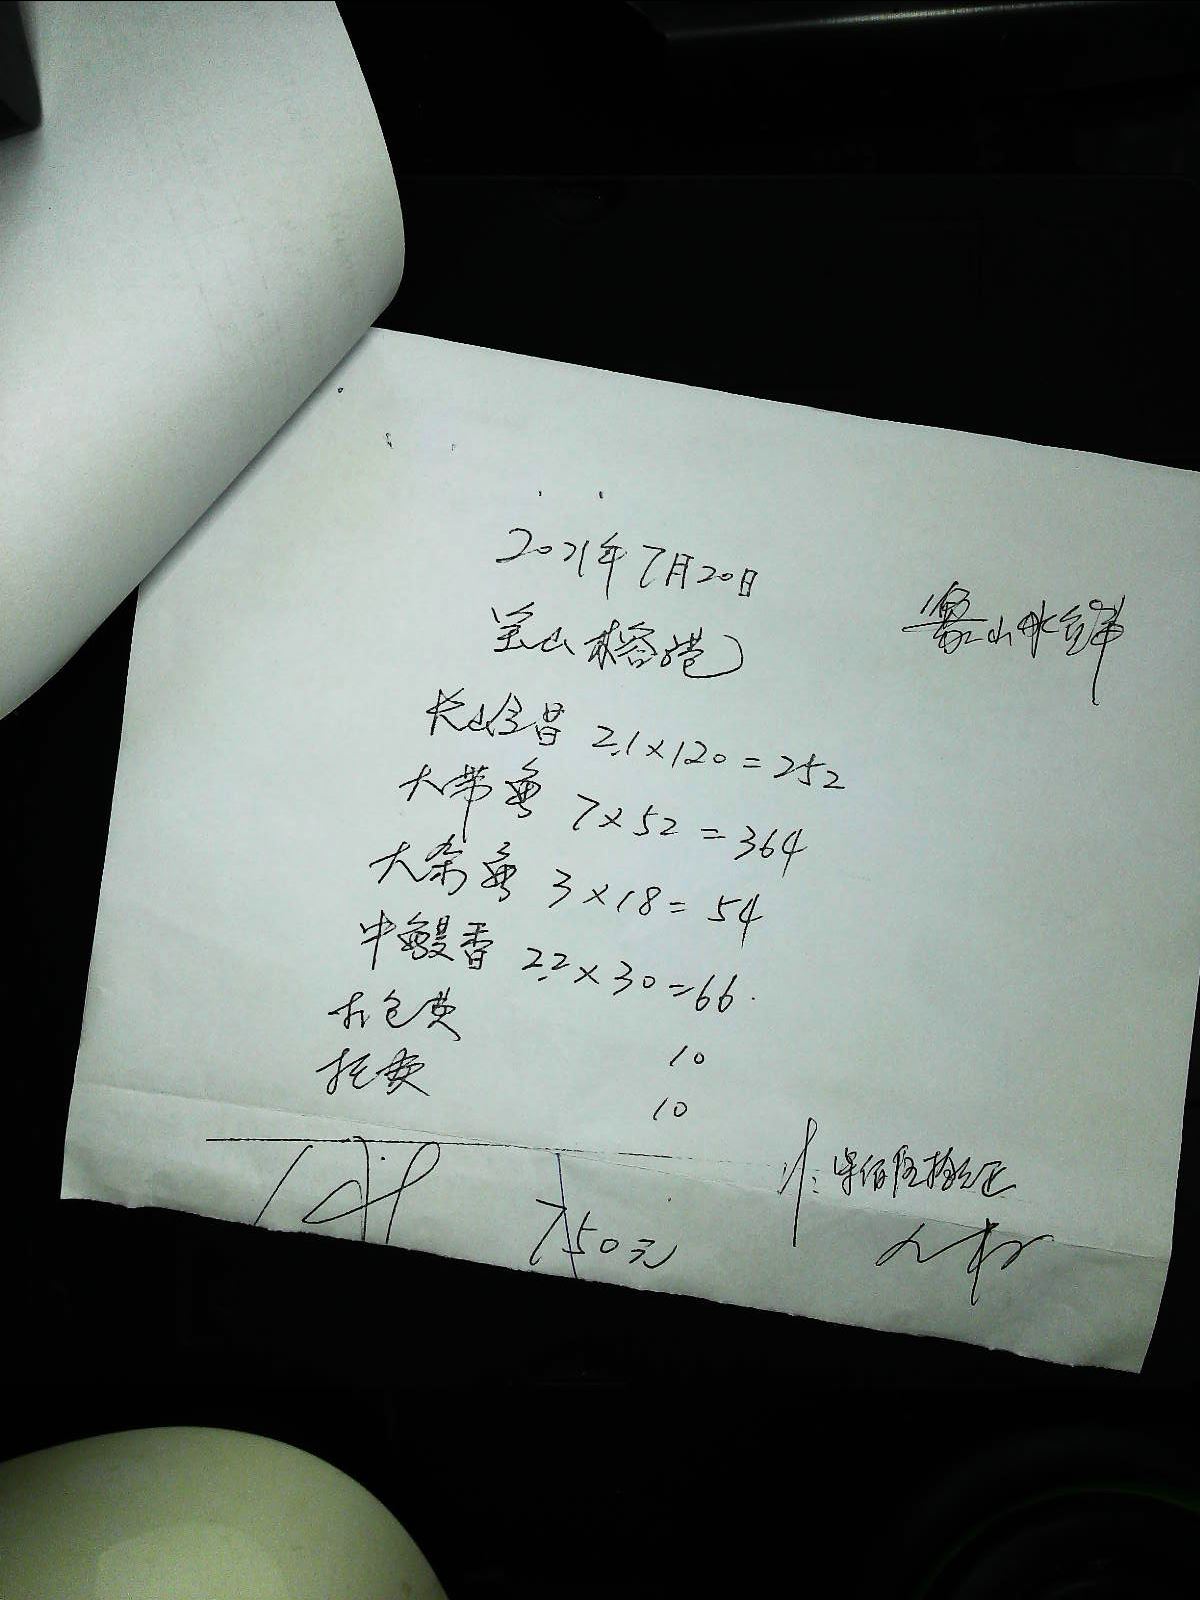 2021年7月20日
宝山榕港
象山水产
长山全昌 2.1×120=252
大带鱼 7×52=364
大杂鱼 3×18=54
中鳗香 2.2×30=66.
打包费 10
托费 10
750元